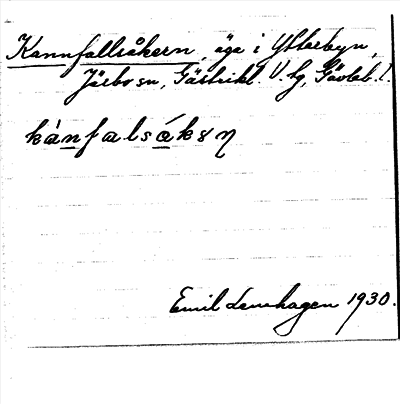 Kannfallsåkern, äga i Ytterbyn,
Järbo sn, Gästrikl. V. hg, Gävleb. l.
kànfalsákȣn
Emil Lenhagen 1930.